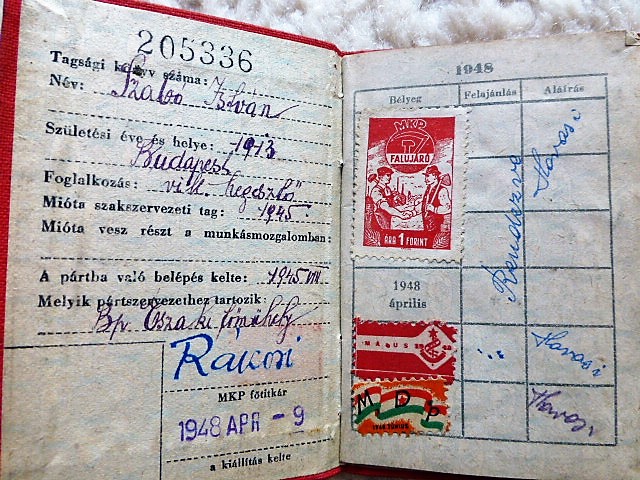 205336
Tagsági könyv száma:
Név: Szabó István
Születési éve és helye: 1913
Budapest
Foglalkozás: vill. hegesztő
Mióta szakszervezeti tag: 1945.
Mióta vesz részt a munkásmozgalomban:
A pártba való belépés kelte: 1945 VIII
Melyik pártszervezethez tartozik:
Bp. Északi főműhely
Rákosi
MKP főtitkár
1948 APR - 9
a kiállítás kelte
1948
Bélyeg Felajánlás Aláírás
MKP
FALUJÁRÓ
ÁRA 1 FORINT
Rendezve
Havasi
1948
április
MÁJUS
Havasi
MDP
1948 JÚNIUS
Havasi